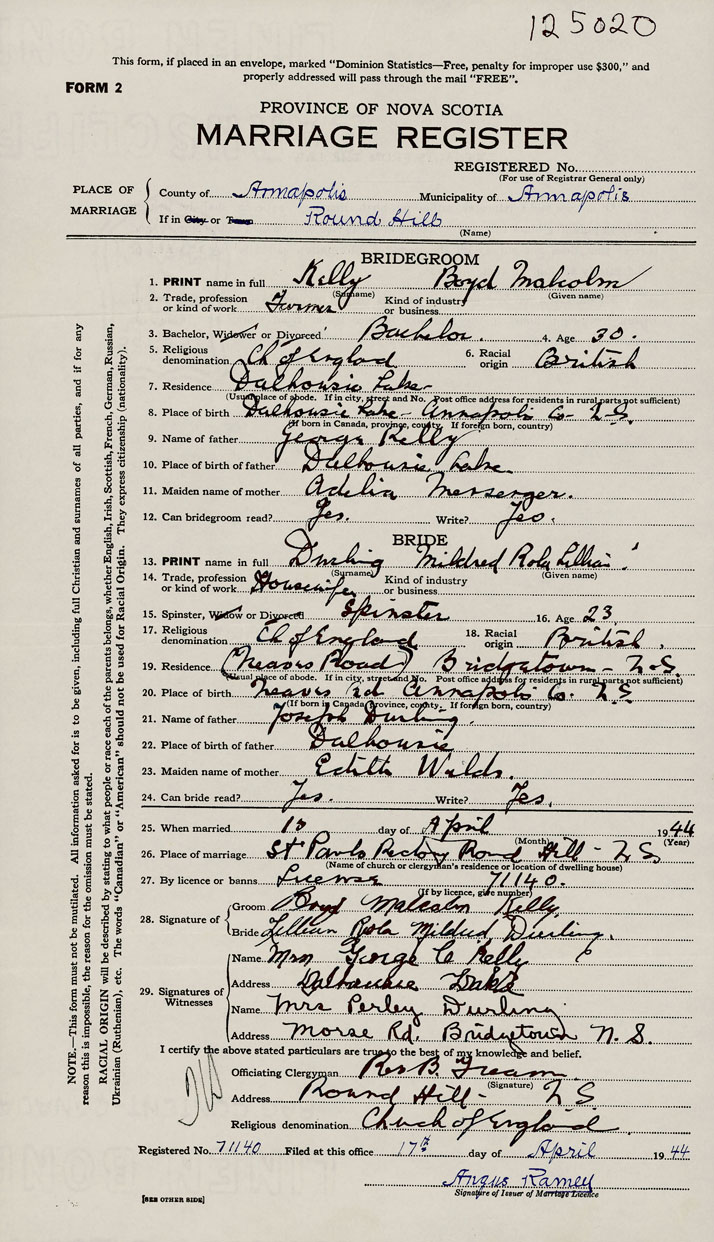 125020
This form, if placed in an envelope, marked "Dominion Statistics—Free, penalty for improper use $300," and
properly addressed will pass through the mail "FREE".
FORM 2
PROVINCE OF NOVA SCOTIA
MARRIAGE REGISTER
REGISTERED No.
(For use of Registrar General only)
PLACE OF MARRIAGE
County of Annapolis Municipality of Annapolis
If in City or Town Round Hill
(Name)
BRIDEGROOM
1. PRINT name in full Kelly Boyd Malcolm
(Surname) (Given name)
2. Trade, profession or kind of work Farmer Kind of industry or business
3. Bachelor, Widower or Divorced Bachelor. 4. Age 30.
5. Religious denomination Ch of England 6. Racial origin British
7. Residence Dalhousie Lake
(Usual place of abode. If in city, street and No. Post office address for residents in rural parts not sufficient)
8. Place of birth Dalhousie Lake - Annapolis Co. N.S.
(If born in Canada, province, county. If foreign born, country)
9. Name of father George Kelly
10. Place of birth of father Dalhousie Lake
11. Maiden name of mother Adelia Messenger.
12. Can bridegroom read? Yes. Write? Yes.
BRIDE
13. PRINT name in full Durling Mildred Rola Lillian
(Surname) (Given name)
14. Trade, profession or kind of work Housewife Kind of industry or business
15. Spinster, Widow or Divorced Spinster 16. Age 23
17. Religious denomination Ch of England 18. Racial origin British
19. Residence (Neaves Road) Bridgetown - N.S.
(Usual place of abode. If in city, street and No. Post office address for residents in rural parts not sufficient)
20. Place of birth Neaves rd Annapolis Co. N.S
(If born in Canada, province, county. If foreign born, country)
21. Name of father Joseph Durling.
22. Place of birth of father Dalhousie
23. Maiden name of mother Edith Wilds.
24. Can bride read? Yes. Write? Yes.
25. When married day of April 1944
(Month) (Year)
26. Place of marriage St Pauls Rectory Round Hill - N S
(Name of church or clergyman's residence or location of dwelling house)
27. By licence or banns License 71140.
(If by licence, give number)
28. Signature of
Groom Boyd Malcolm Kelly
Bride Lillian Rola Mildred Durling.
29. Signatures of Witnesses
Name Mrs George C Kelly
Address Dalhousie Lake
Name Mrs Perley Durling
Address Morse Rd. Bridgetown N. S.
I certify the above stated particulars are true to the best of my knowledge and belief.
Officiating Clergyman Rev B.
(Signature)
Address Round Hill - N S
Religious denomination Church of England
Registered No. 71140 Filed at this office 17th day of April 1944
Angus Ramey
Signature of Issuer of Marriage Licence
[SEE OTHER SIDE]
NOTE.—This form must not be mutilated. All information asked for is to be given, including full Christian and surnames of all parties, and if for any
reason this is impossible, the reason for the omission must be stated.
RACIAL ORIGIN will be described by stating to what people or race each of the parents belongs, whether English, Irish, Scottish, French, German, Russian,
Ukrainian (Ruthenian), etc. The words "Canadian" or "American" should not be used for Racial Origin. They express citizenship (nationality).